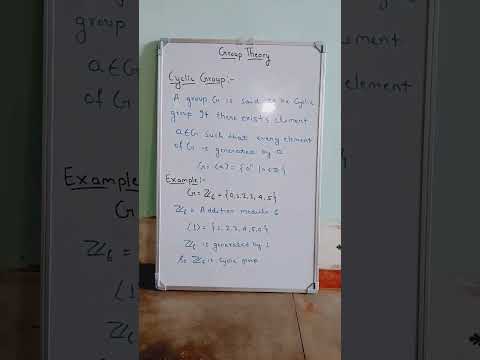 Group Theory
Cyclic Group:-
A group G is said to be Cyclic
group If there exists element
a∈G such that every element
of G is generated by a
G = <a> = {aⁿ | n∈Z}
Example:-
G = Z₆ = {0,1,2,3,4,5}
Z₆ = Addition modulo 6
<1> = {1,2,3,4,5,0}
Z₆ is generated by 1
So Z₆ is Cyclic group